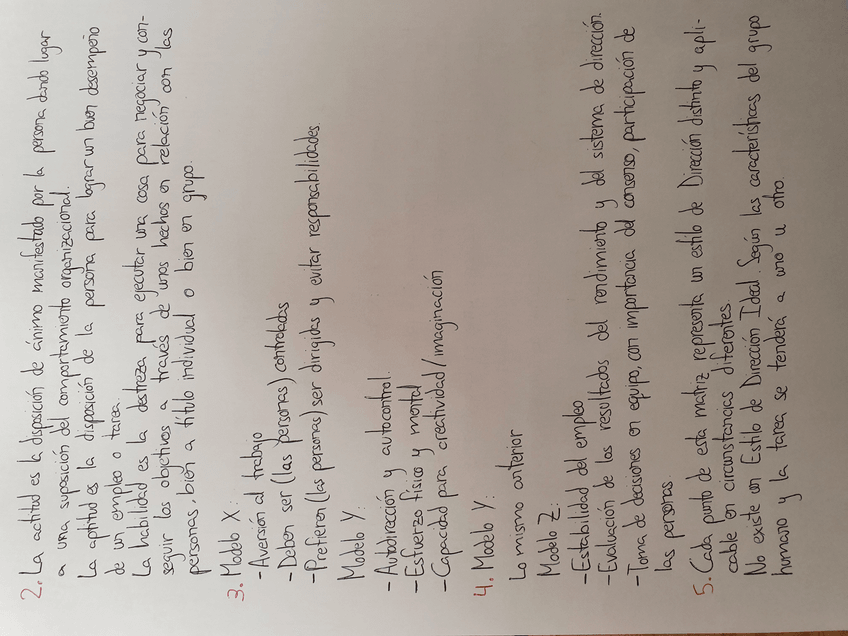 2. La actitud es la disposición de ánimo manifestado por la persona dando lugar
a una suposición del comportamiento organizacional.
La aptitud es la disposición de la persona para lograr un buen desempeño
de un empleo o tarea.
La habilidad es la destreza para ejecutar una cosa para negociar y con-
seguir los objetivos a través de unos hechos en relación con las
personas bien a título individual o bien en grupo.
3. Modelo X:
- Aversión al trabajo
- Deben ser (las personas) controladas
- Prefieren (las personas) ser dirigidas y evitar responsabilidades.
Modelo Y:
- Autodirección y autocontrol.
- Esfuerzo físico y mental
- Capacidad para creatividad/imaginación
4. Modelo Y:
Lo mismo anterior
Modelo Z:
- Estabilidad del empleo
- Evaluación de los resultados del rendimiento y del sistema de dirección.
- Toma de decisiones en equipo, con importancia del consenso, participación de
las personas
5. Cada punto de esta matriz representa un estilo de Dirección distinto y apli-
cable en circunstancias diferentes.
No existe un Estilo de Dirección Ideal. Según las características del grupo
humano y la tarea se tenderá a uno u otro